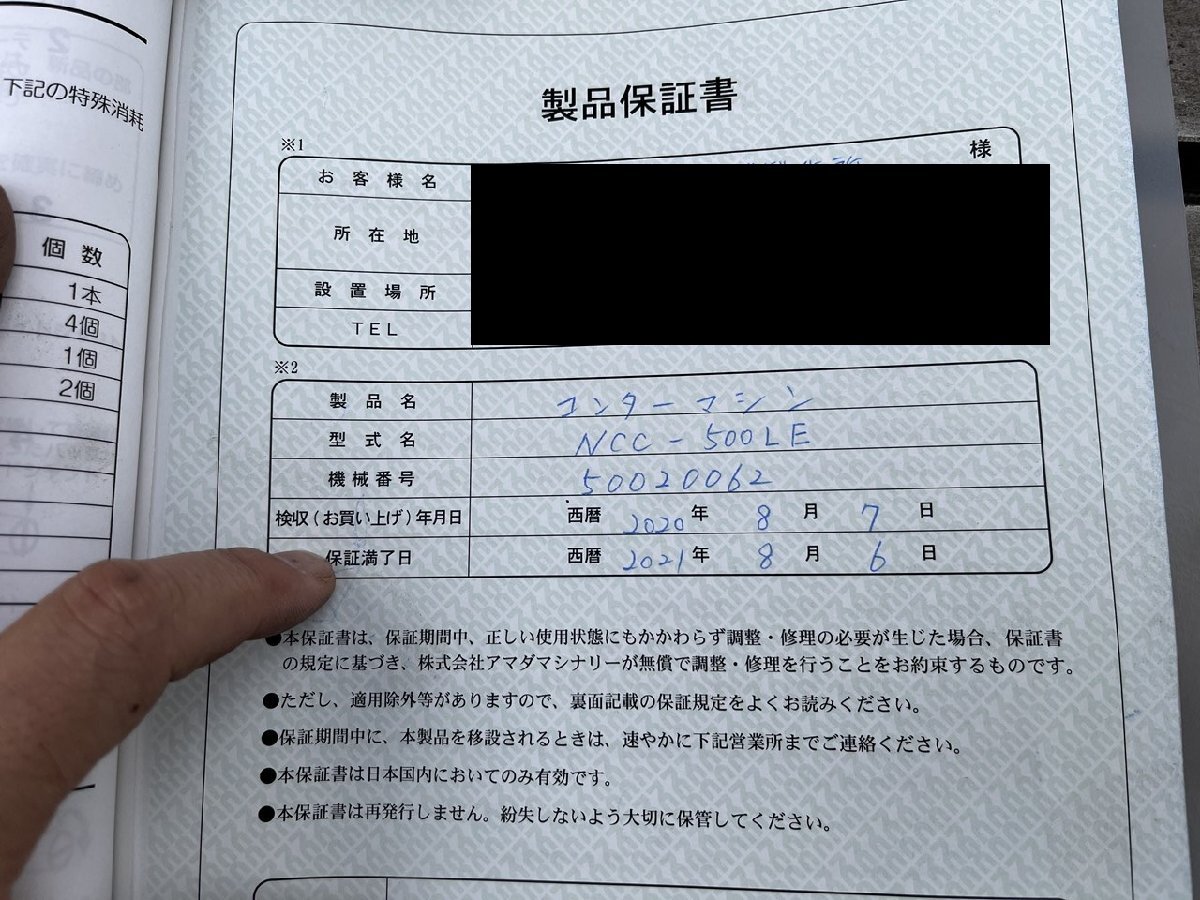 下記の特殊消耗
個数
1本
4個
1個
2個
製品保証書
※1
お客様名 様
所在地
設置場所
TEL
※2
製品名 コンターマシン
型式名 NCC-500LE
機械番号 50020062
検収(お買い上げ)年月日 西暦 2020年 8月 7日
保証満了日 西暦 2021年 8月 6日
●本保証書は、保証期間中、正しい使用状態にもかかわらず調整・修理の必要が生じた場合、保証書
の規定に基づき、株式会社アマダマシナリーが無償で調整・修理を行うことをお約束するものです。
●ただし、適用除外等がありますので、裏面記載の保証規定をよくお読みください。
●保証期間中に、本製品を移設されるときは、速やかに下記営業所までご連絡ください。
●本保証書は日本国内においてのみ有効です。
●本保証書は再発行しません。紛失しないよう大切に保管してください。